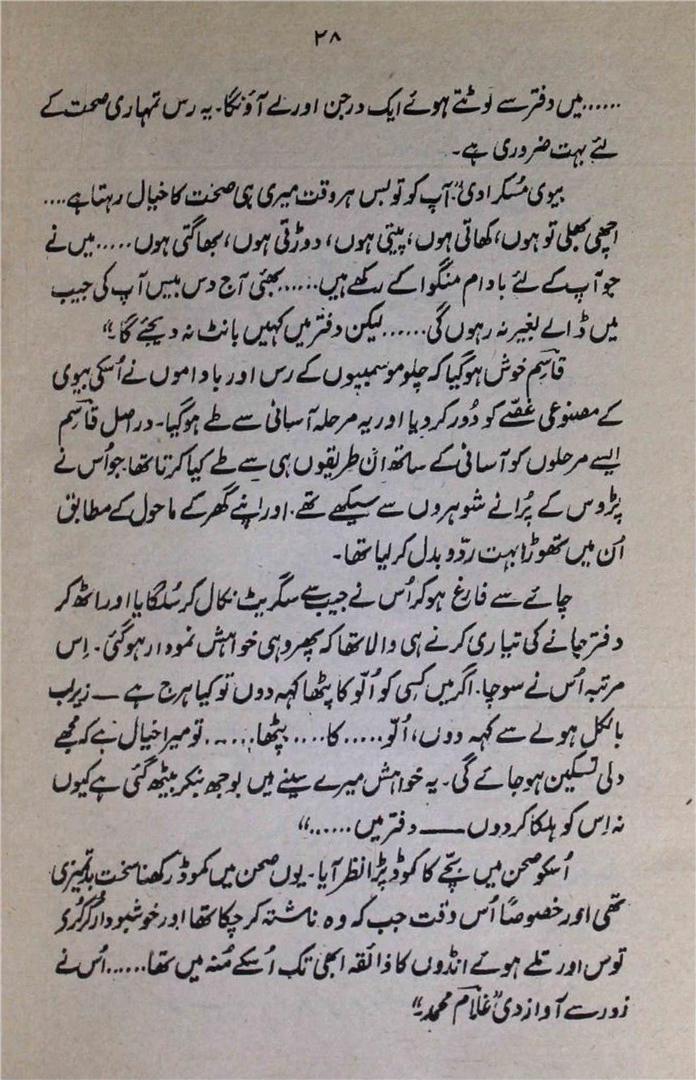 ۲۸
......میں دفتر سے لوٹتے ہوئے ایک درجن اور لے آؤنگا۔ یہ رس تمہاری صحت کے
لئے بہت ضروری ہے۔
بیوی مُسکرا دی "آپ کو تو بس ہر وقت میری ہی صحت کا خیال رہتا ہے....
اچھی بھلی تو ہوں، کھاتی ہوں، پیتی ہوں، دوڑتی ہوں، بھاگتی ہوں.....میں نے
جو آپ کے لئے بادام منگوا کے رکھے ہیں......بھئی آج دس بیس آپ کی جیب
میں ڈالے بغیر نہ رہوں گی......لیکن دفتر میں کہیں بانٹ نہ دیجئے گا۔"
قاسم خوش ہو گیا کہ چلو موسمبیوں کے رس اور باداموں نے اُسکی بیوی
کے مصنوعی غصّے کو دُور کر دیا اور یہ مرحلہ آسانی سے طے ہو گیا۔ دراصل قاسم
ایسے مرحلوں کو آسانی کے ساتھ ان طریقوں ہی سے طے کیا کرتا تھا۔ جو اُس نے
پڑوس کے پُرانے شوہروں سے سیکھے تھے۔ اور اپنے گھر کے ماحول کے مطابق
اُن میں تھوڑا بہت ردّو بدل کر لیا تھا۔
چائے سے فارغ ہو کر اُس نے جیب سے سگریٹ نکال کر سُلگایا اور اٹھ کر
دفتر جانے کی تیاری کرنے ہی والا تھا کہ پھر وہی خواہش نمودار ہو گئی۔ اِس
مرتبہ اُس نے سوچا۔ اگر میں کسی کو اُلّو کا پٹھا کہہ دوں تو کیا ہرج ہے — زیرِ لب
بالکل ہولے سے کہہ دوں، اُلّو.....کا....پٹھا.....تو میرا خیال ہے کہ مجھے
دلی تسکین ہو جائے گی۔ یہ خواہش میرے سینے میں بوجھ بنکر بیٹھ گئی ہے کیوں
نہ اِس کو ہلکا کر دوں — دفتر میں......"
اُسکو صحن میں بچّے کا کموڈ پڑا نظر آیا۔ یوں صحن میں کموڈ رکھنا سخت بدتمیزی
تھی اور خصوصاً اُس وقت جب کہ وہ ناشتہ کر چکا تھا اور خوشبودار کُرکُری
توس اور تلے ہوئے انڈوں کا ذائقہ ابھی تک اُسکے مُنہ میں تھا......اُس نے
زور سے آواز دی "غلام محمد۔"